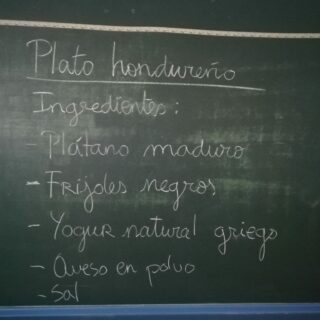 Plato hondureño
Ingredientes:
- Plátano maduro
- Frijoles negros
- Yogur natural griego
- Queso en polvo
- Sal